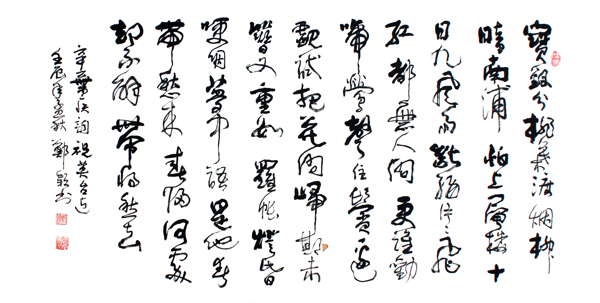 寶釵分桃葉渡烟柳
暗南浦怕上層樓十
日九風雨斷腸片片飛
紅都無人更誰勸
啼鶯聲住鬢邊
覷試把花歸期未
簪又重數羅帳燈昏
哽咽夢中語是他春
帶愁來春歸何處
却不解帶將愁去
辛棄疾詞祝英台近
壬辰年孟秋鄭書